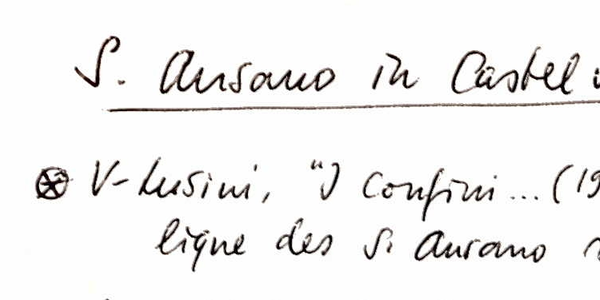 S. Ansano in Castel
V. Lusini, "I Confini... (19
des S. Ansano